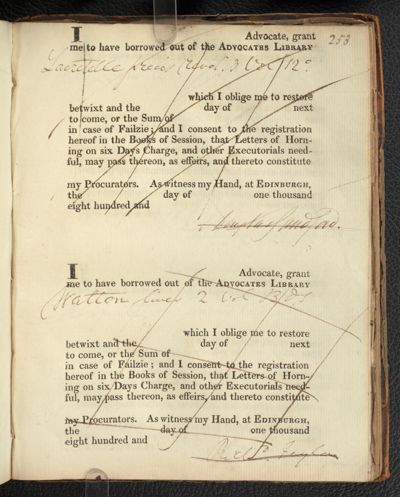 253
I Advocate, grant
me to have borrowed out of the ADVOCATES LIBRARY
3 Vol. 12º
which I oblige me to restore
betwixt and the day of next
to come, or the Sum of
in case of Failzie; and I consent to the registration
hereof in the Books of Session, that Letters of Horn-
ing on six Days Charge, and other Executorials need-
ful, may pass thereon, as effeirs, and thereto constitute
my Procurators. As witness my Hand, at EDINBURGH,
the day of one thousand
eight hundred and
I Advocate, grant
me to have borrowed out of the ADVOCATES LIBRARY
Walton Lives 2 Vol.
which I oblige me to restore
betwixt and the day of next
to come, or the Sum of
in case of Failzie; and I consent to the registration
hereof in the Books of Session, that Letters of Horn-
ing on six Days Charge, and other Executorials need-
ful, may pass thereon, as effeirs, and thereto constitute
my Procurators. As witness my Hand, at EDINBURGH,
the day of one thousand
eight hundred and